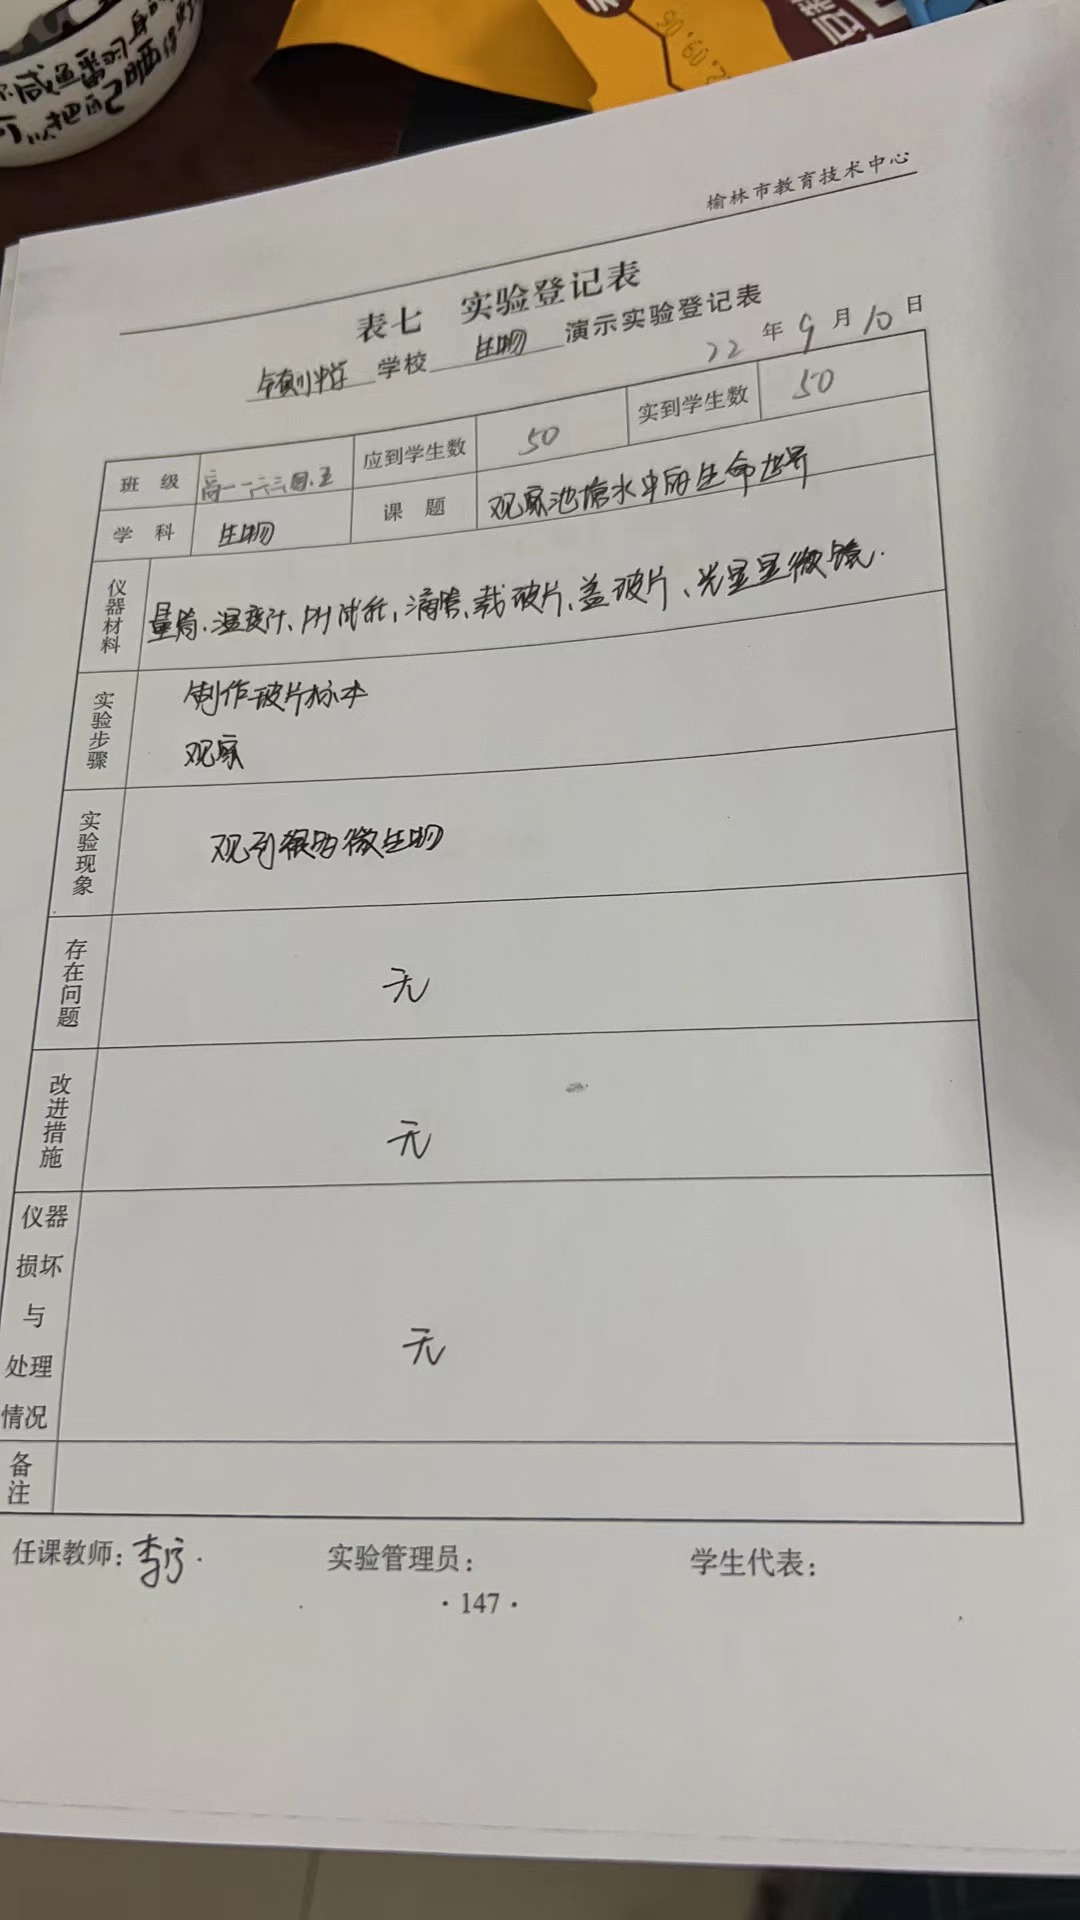 可以把自己晒得
榆林市教育技术中心
表七 实验登记表
学校 生物 演示实验登记表
22 年 9 月 10 日
班级 高一一二三四、五 应到学生数 50 实到学生数 50
学科 生物 课题 观察池塘水中的生命世界
仪器材料 量筒、温度计、PH试纸、滴管、载玻片、盖玻片、光显显微镜.
实验步骤 制作玻片标本
观察
实验现象 观到很多微生物
存在问题 无
改进措施 无
仪器
损坏
与
处理
情况 无
备注
任课教师: 实验管理员: 学生代表:
·147·